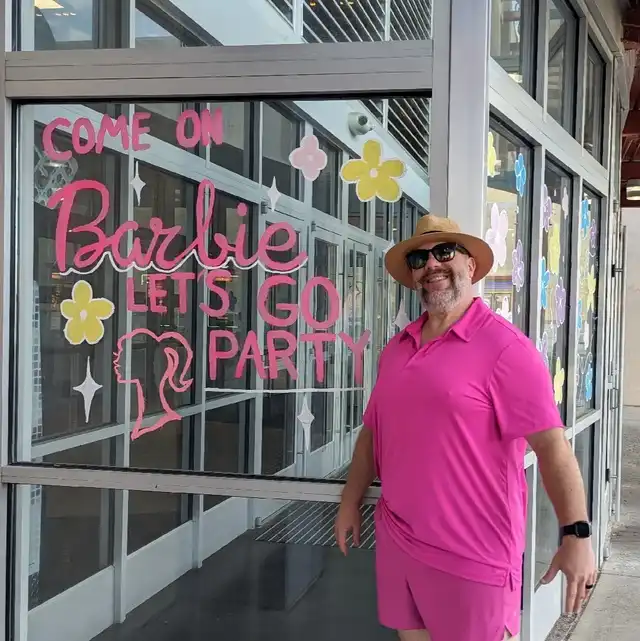 COME ON
Barbie
LET'S GO
PARTY